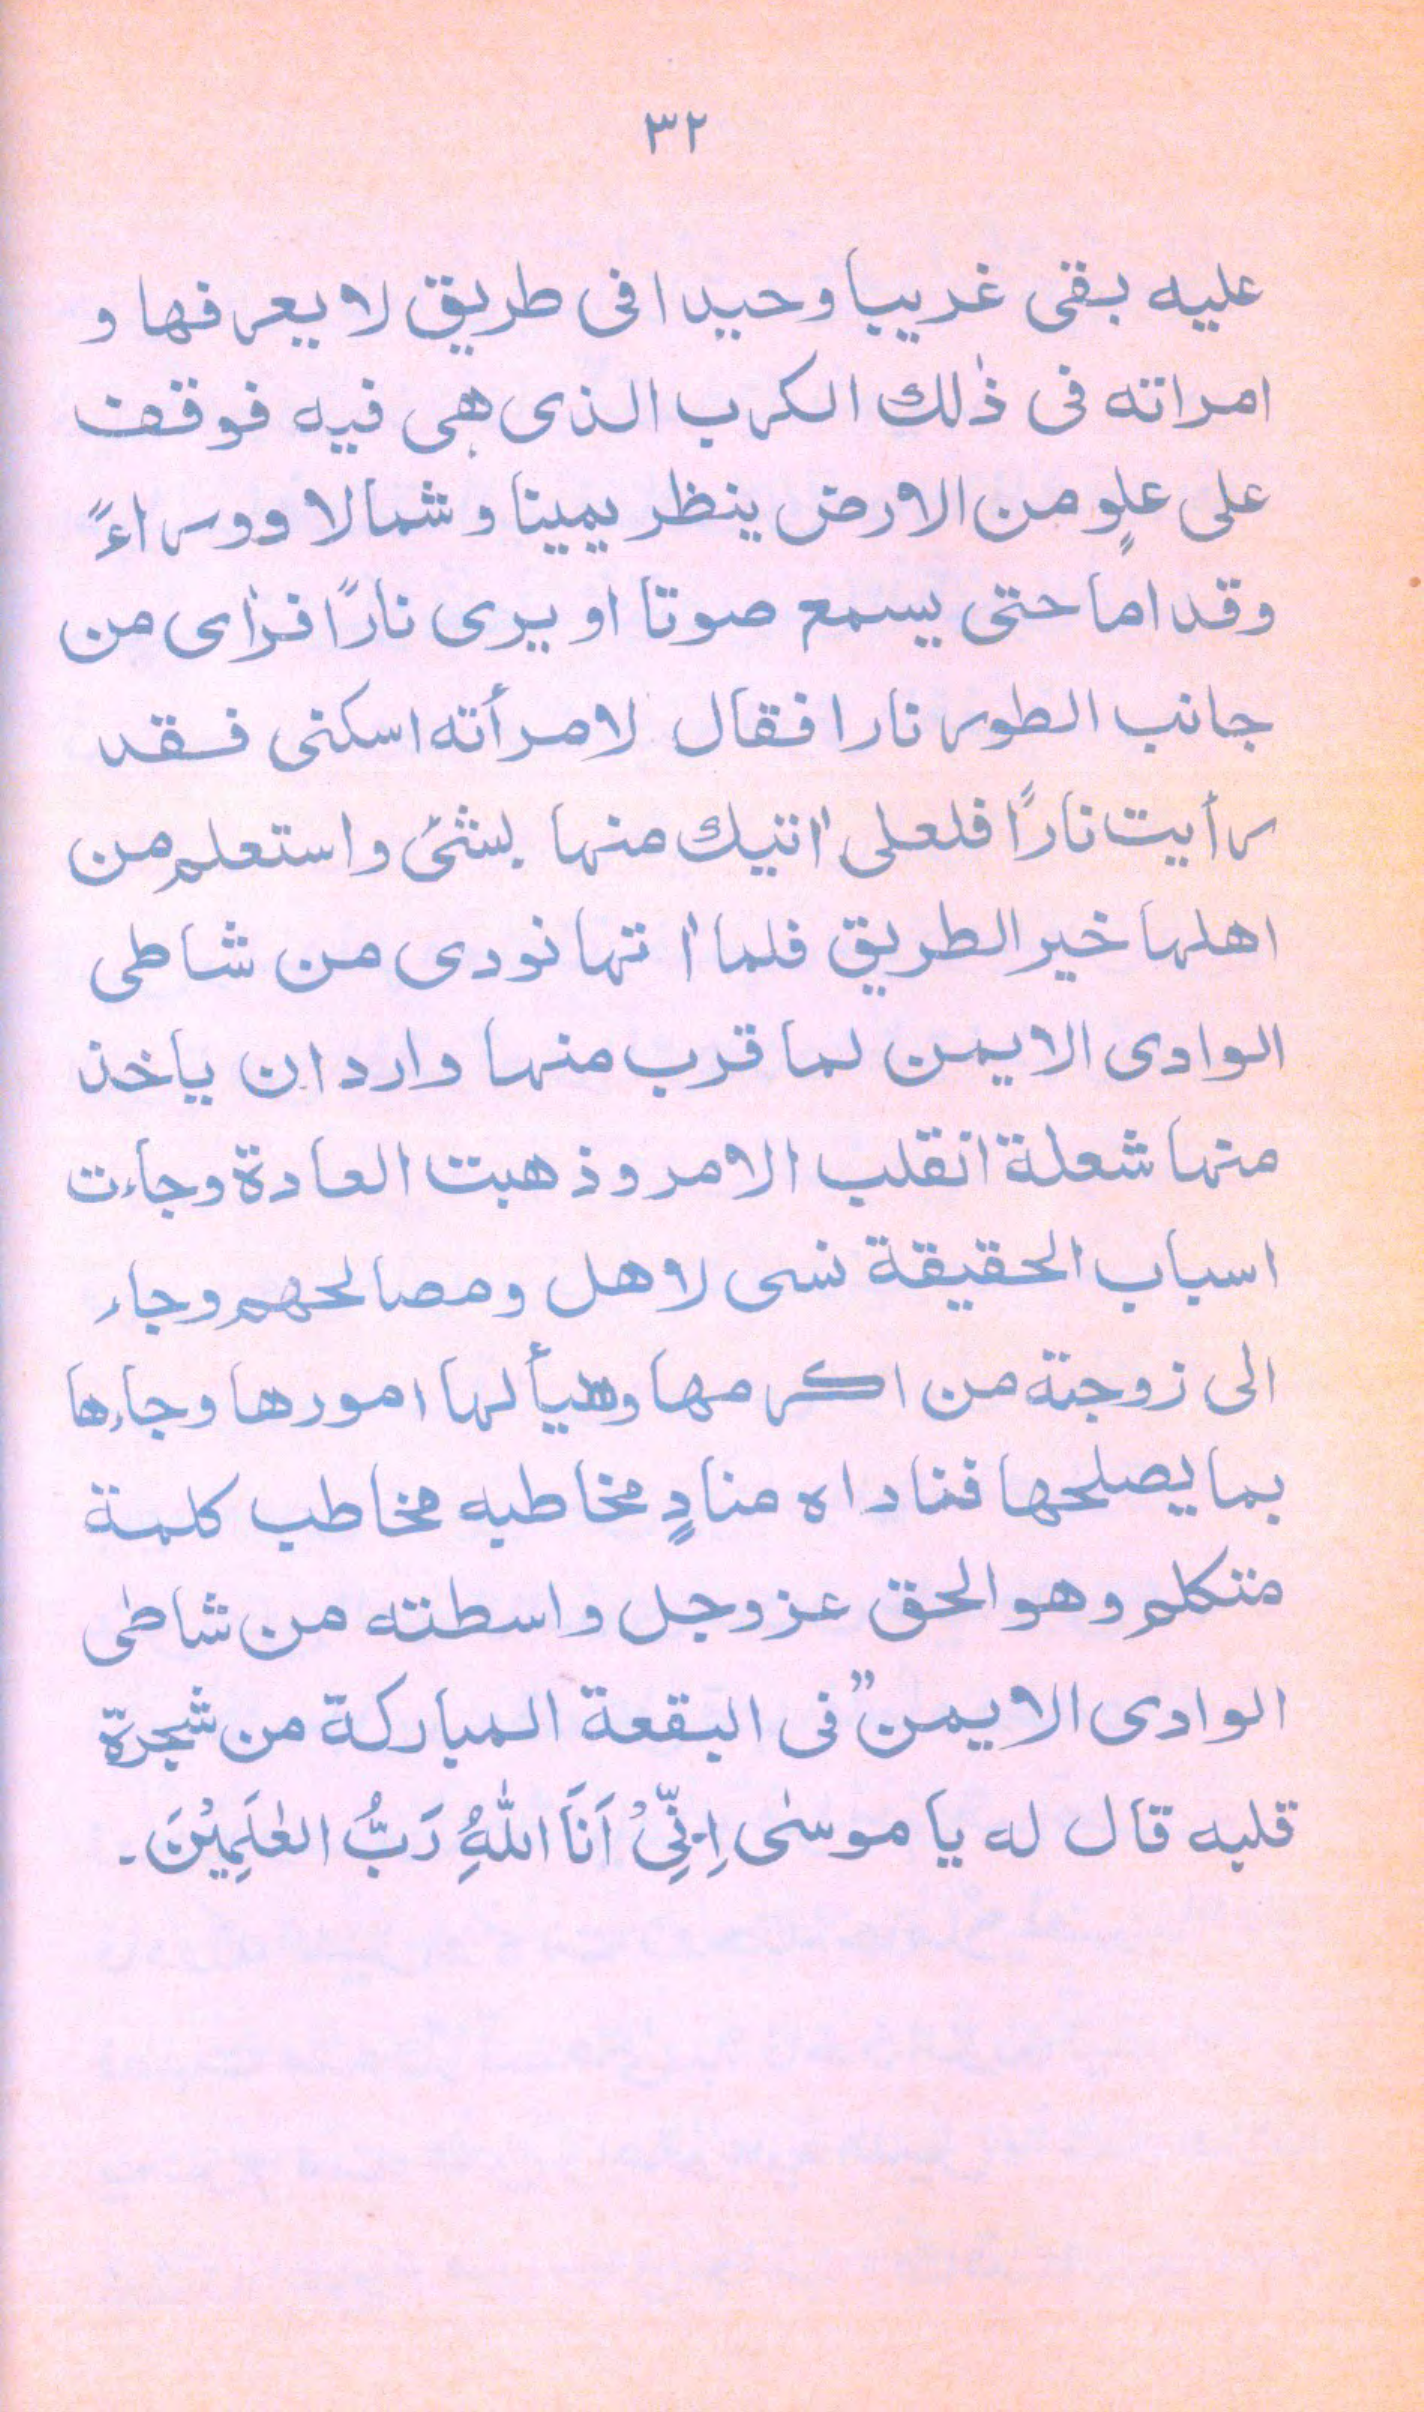 ٣٢
عليه بقى غريبا وحيدا فى طريق لا يعرفها و
امراته فى ذٰلك الكرب الذى هى فيه فوقف
على علوٍ من الارض ينظر يمينا و شمالا ووراءً
وقداما حتى يسمع صوتا او يرى نارًا فراٰى من
جانب الطور نارا فقال لامرأته اسكنى فقد
رأيت نارًا فلعلى اٰتيك منها بشئ واستعلم من
اهلها خير الطريق فلما اٰتها نودى من شاطى
الوادى الايمن لما قرب منها وارد ان ياخذ
منها شعلة انقلب الامر وذهبت العادة وجاءت
اسباب الحقيقة نسى لاهل ومصالحهم وجاء
الى زوجتة من اكرمها وهيأ لها امورها وجاءها
بما يصلحها فناداه منادٍ مخاطبه مخاطب كلمة
متكلم وهو الحق عز وجل واسطته من شاطى
الوادى الايمن” فى البقعة المباركة من شجرة
قلبه قال له يا موسٰى اِنِّىْ اَنَا اللّٰهُ رَبُّ العٰلَمِيْنَ۔